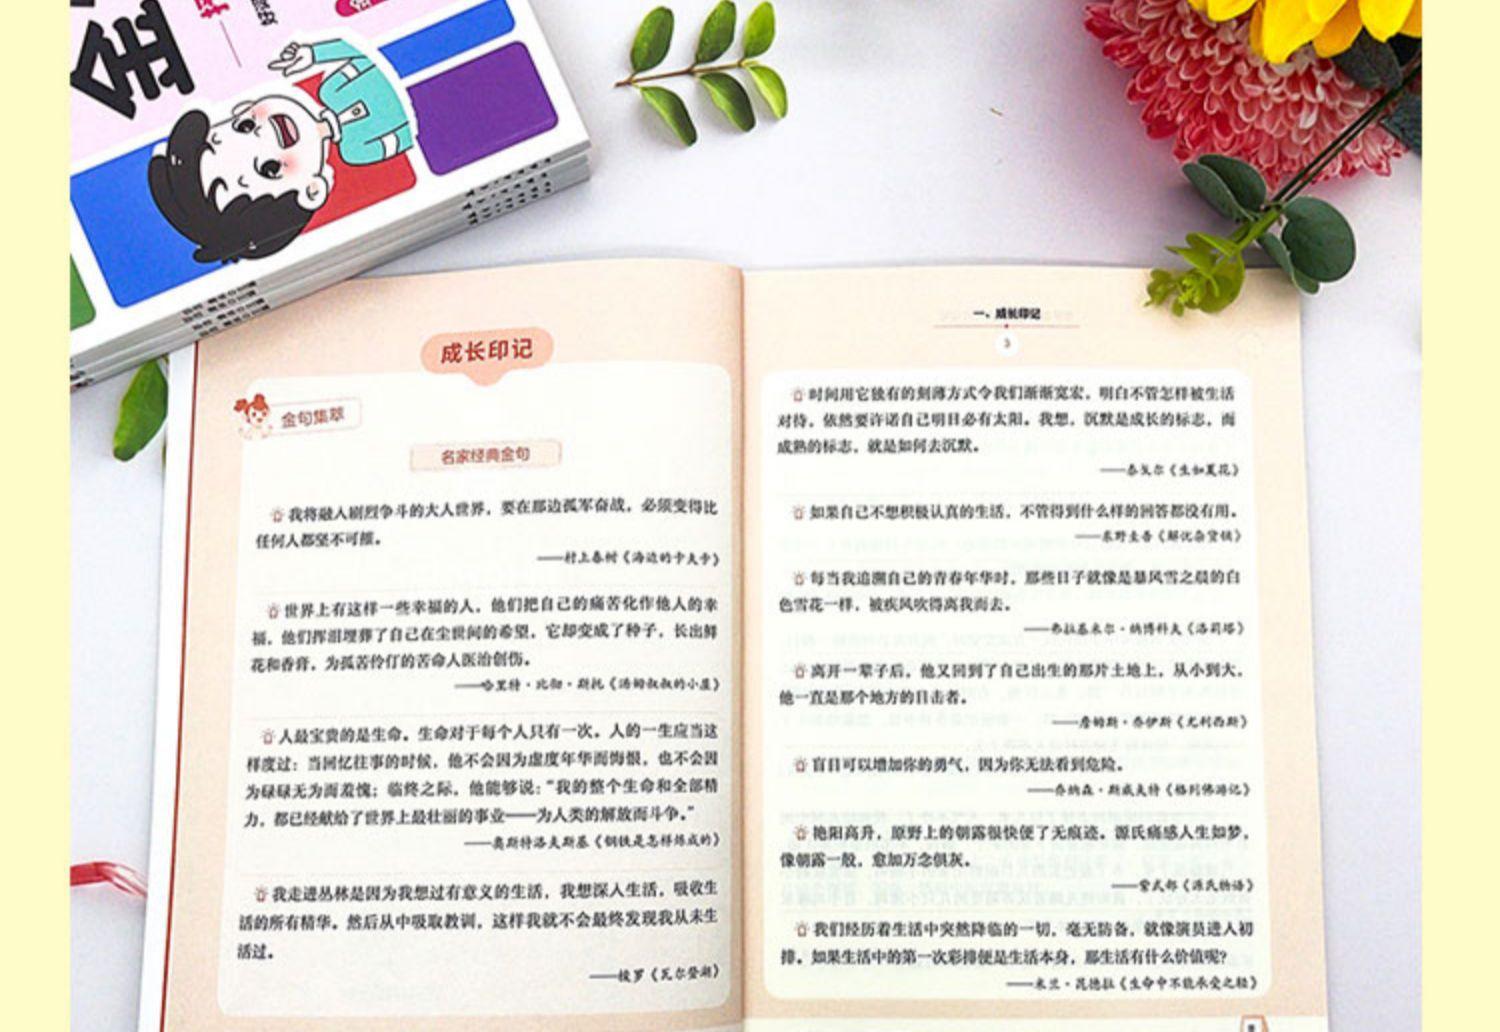 金
成长印记
金句集萃
名家经典金句
我将融入剧烈争斗的大人世界，要在那边孤军奋战，必须变得比
任何人都坚不可摧。
——村上春树《海边的卡夫卡》
世界上有这样一些幸福的人，他们把自己的痛苦化作他人的幸
福，他们挥泪埋葬了自己在尘世间的希望，它却变成了种子，长出鲜
花和香膏，为孤苦伶仃的苦命人医治创伤。
——哈里特·比彻·斯托《汤姆叔叔的小屋》
人最宝贵的是生命。生命对于每个人只有一次。人的一生应当这
样度过：当回忆往事的时候，他不会因为虚度年华而悔恨，也不会因
为碌碌无为而羞愧；临终之际，他能够说：“我的整个生命和全部精
力，都已经献给了世界上最壮丽的事业——为人类的解放而斗争。”
——奥斯特洛夫斯基《钢铁是怎样炼成的》
我走进丛林是因为我想过有意义的生活，我想深入生活，吸收生
活的所有精华。然后从中吸取教训，这样我就不会最终发现我从未生
活过。
——梭罗《瓦尔登湖》
一、成长印记
3
时间用它独有的刻薄方式令我们渐渐宽宏，明白不管怎样被生活
对待，依然要许诺自己明日必有太阳。我想，沉默是成长的标志，而
成熟的标志，就是如何去沉默。
——泰戈尔《生如夏花》
如果自己不想积极认真的生活，不管得到什么样的回答都没有用。
——东野圭吾《解忧杂货铺》
每当我追溯自己的青春年华时，那些日子就像是暴风雪之晨的白
色雪花一样，被疾风吹得离我而去。
——弗拉基米尔·纳博科夫《洛莉塔》
离开一辈子后，他又回到了自己出生的那片土地上，从小到大，
他一直是那个地方的目击者。
——詹姆斯·乔伊斯《尤利西斯》
盲目可以增加你的勇气，因为你无法看到危险。
——乔纳森·斯威夫特《格列佛游记》
艳阳高升，原野上的朝露很快便了无痕迹。源氏痛感人生如梦，
像朝露一般，愈加万念俱灰。
——紫式部《源氏物语》
我们经历着生活中突然降临的一切，毫无防备，就像演员进入初
排。如果生活中的第一次彩排便是生活本身，那生活有什么价值呢？
——米兰·昆德拉《生命中不能承受之轻》